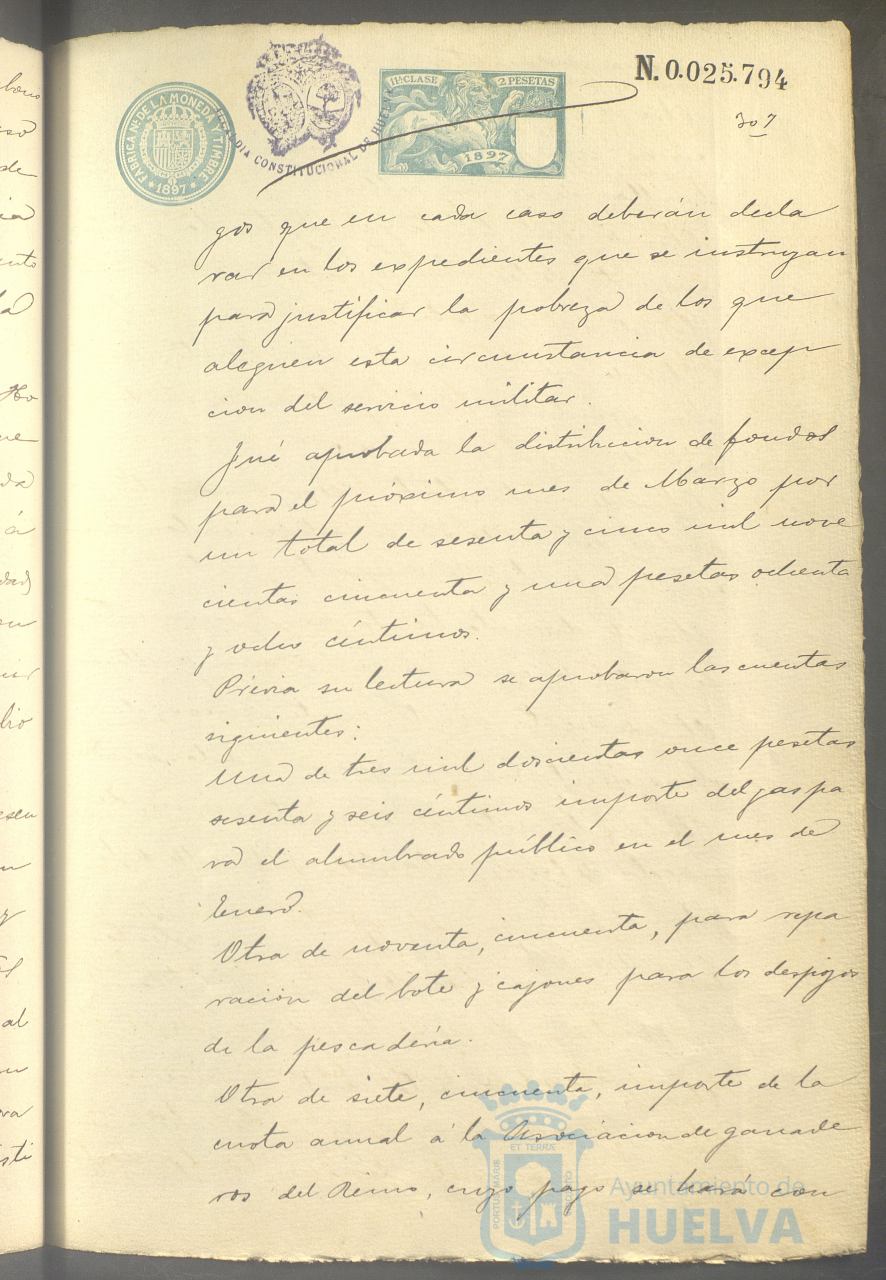 FABRICA NL. DE LA MONEDA Y TIMBRE
* 1897 *
ALCALDIA CONSTITUCIONAL DE HUELVA
11ª CLASE
2 PESETAS
1897
N.0.025.794
307
gos que en cada caso deberán decla
rar en los expedientes que se instruyan
para justificar la pobreza de los que
aleguen esta circunstancia de excep
cion del servicio militar.
Fué aprobada la distribucion de fondos
para el próximo mes de Marzo por
un total de sesenta y cinco mil nove
cientas cincuenta y una pesetas ochenta
y ocho céntimos.
Prévia su lectura se aprobaron las cuentas
siguientes:
Una de tres mil doscientas once pesetas
sesenta y seis céntimos importe del gas pa
ra el alumbrado público en el mes de
Enero.
Otra de noventa, cincuenta, para repa
ración del bote y cajones para los despojos
de la pescadería.
Otra de siete, cincuenta, importe de la
cuota anual á la Asociacion de ganade
ros del Reino, cuyo pago se hará con
PORTUS MARIS
ET TERRÆ
CUSTODIO
Ayuntamiento de
HUELVA